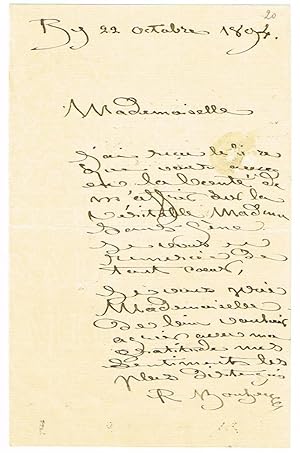 20
By 22 octobre 1894.
Mademoiselle
j'ai reçu le livre
que vous avez
eu la bonté de
m'offrir sur la
véritable Madame
Sans Gêne
je vous en
remercie de
tout coeur,
je vous prie
Mademoiselle
de bien vouloir
agréer avec ma
gratitude mes
sentiments les
plus distingués
R Bonheur